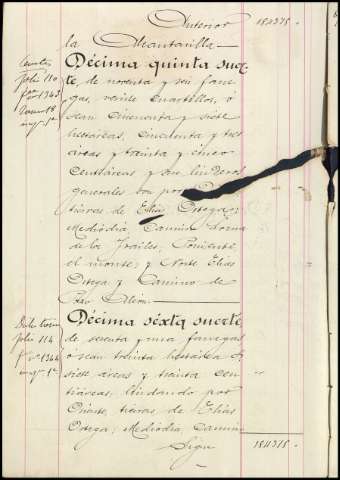 Anterior 1511315.
la Alcantarilla.—
Décima quinta suer-
te, de noventa y seis fane-
gas, veinte cuartillos, ó
sean cincuenta y siete
hectáreas, cincuenta y tres
áreas y treinta y cinco
centiáreas y sus linderos
generales son por
tierras de Elías Ortega;
Mediodía, Camino
de la Poniente,
el monte; y Norte Elías
Ortega y Camino de
folio 110
nº 1343
Décima sexta suerte,
de sesenta y una fanegas
ó sean treinta hectáreas
siete áreas y treinta cen-
tiáreas, lindando por
Oriente, tierras de Elías
Ortega; Mediodía, Camino
Sigue 1511315.
folio 114
nº 1344